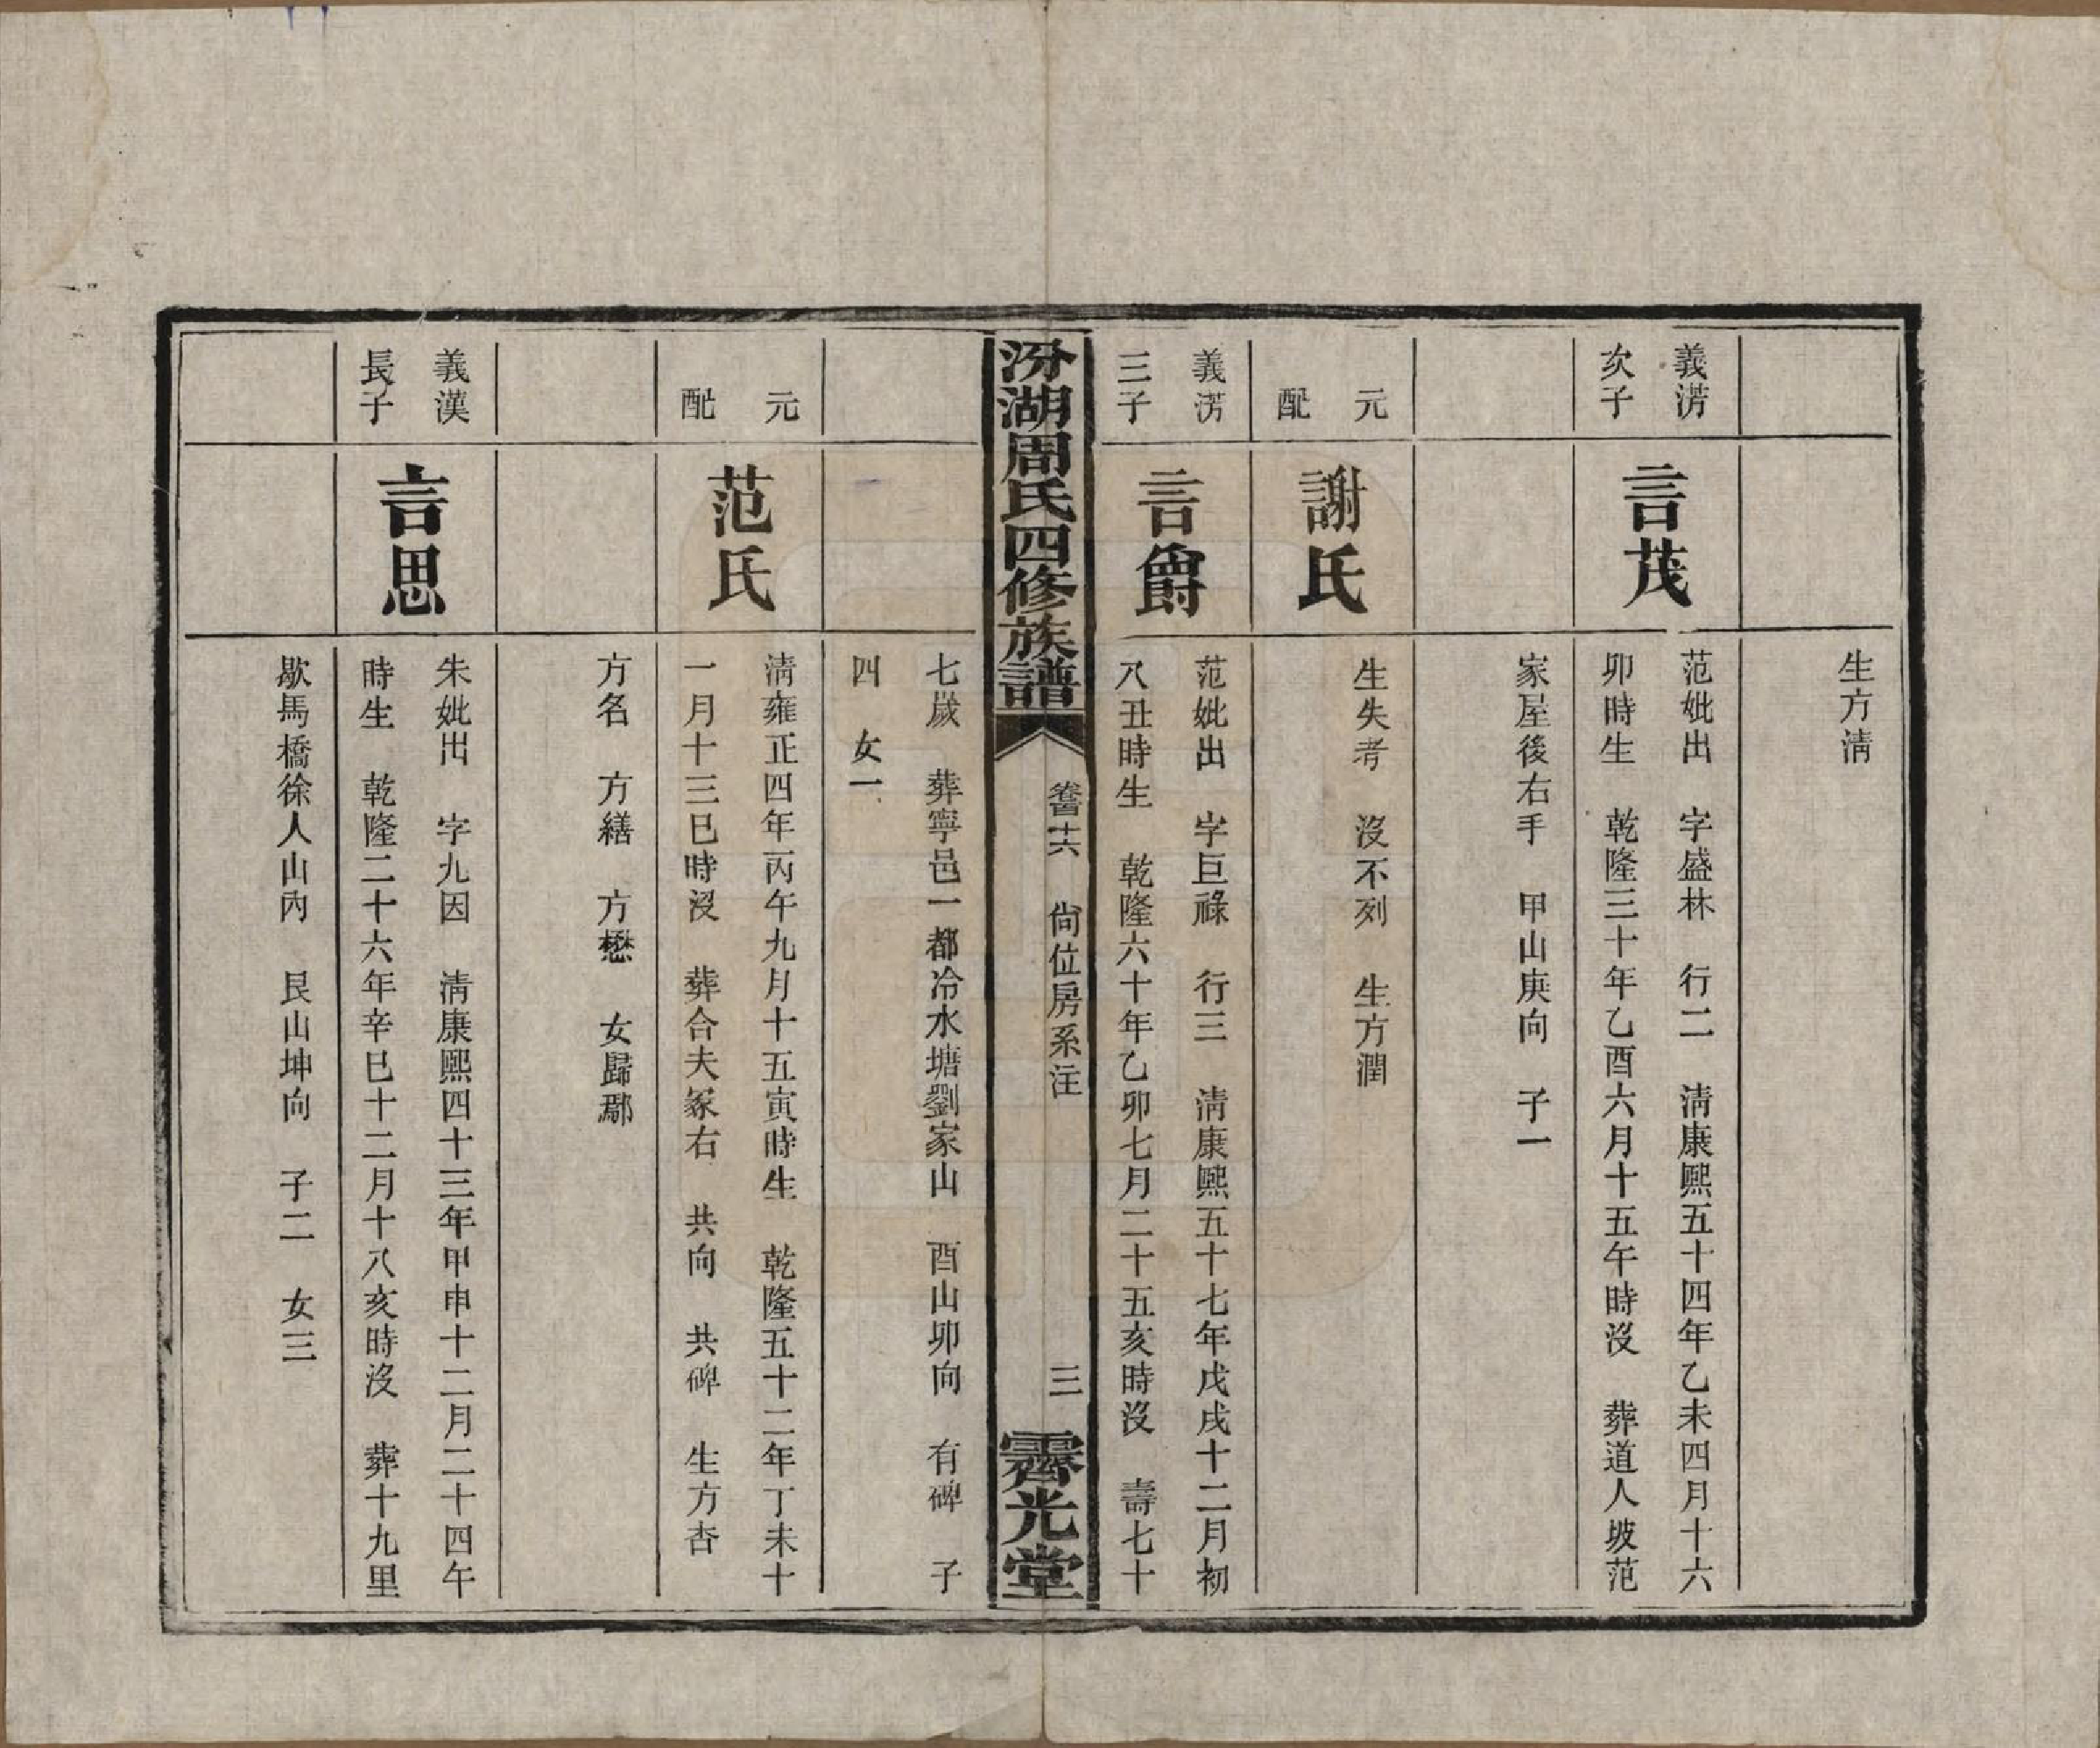 生方淸
義淓
次子
言茂
范妣出　字盛林　行二　淸康熙五十四年乙未四月十六
卯時生　乾隆三十年乙酉六月十五午時沒　葬道人坡范
家屋後右手　甲山庚向　子一
元
配
謝氏
生失考　沒不列　生方潤
義淓
三子
言爵
范妣出　字巨祿　行三　淸康熙五十七年戊戌十二月初
八丑時生　乾隆六十年乙卯七月二十五亥時沒　壽七十
汾湖周氏四修族譜
尙位房系注
三
霽光堂
七嵗　葬寧邑一都冷水塘劉家山　酉山卯向　有碑　子
四　女一
元
配
范氏
淸雍正四年丙午九月十五寅時生　乾隆五十二年丁未十
一月十三巳時沒　葬合夫冢右　共向　共碑　生方杏
方名　方繕　方懋　女歸鄢
義漢
長子
言思
朱妣出　字九因　淸康熙四十三年甲申十二月二十四午
時生　乾隆二十六年辛巳十二月十八亥時沒　葬十九里
歇馬橋徐人山內　艮山坤向　子二　女三